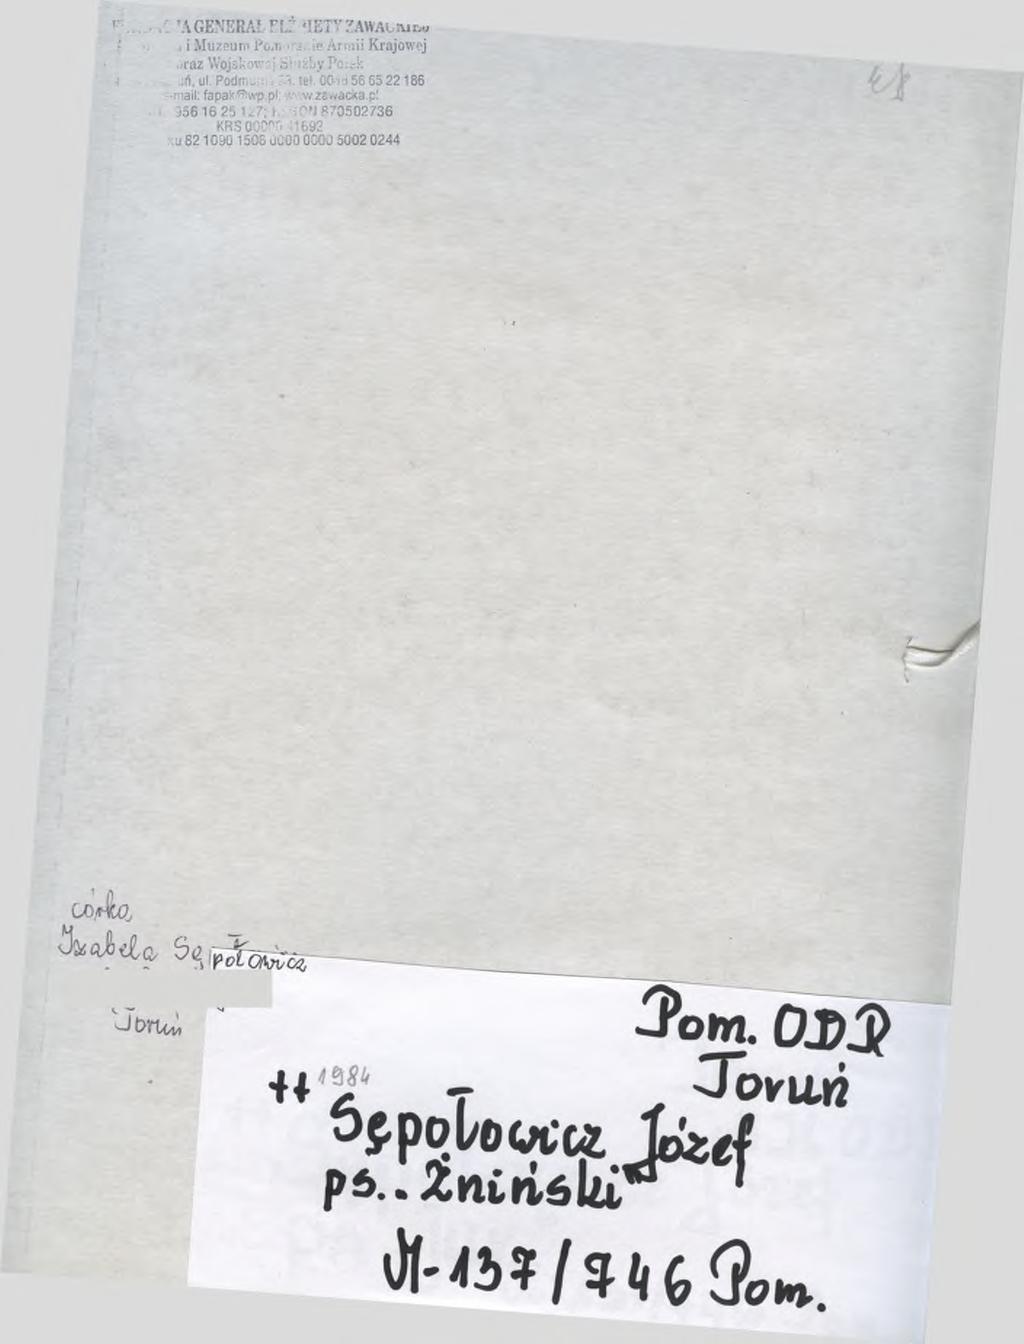 GENERAŁ ELŻBIETY ZAWACKIEJ
i Muzeum Pomorskie Armii Krajowej
oraz Wojskowej Służby Polek
ul. Podmurna 93, tel. 0048 56 65 22 186
e-mail: fapak@wp.pl; www.zawacka.pl
956 16 25 127; REGON 870502736
KRS
82 1090 1506 0000 0000 5002 0244
córka
Izabela Sępołowicz
Toruń
Pom. ODR
Toruń
++ 1984
Sępołowicz Józef
ps. „Żniński"
M-137/746 Pom.